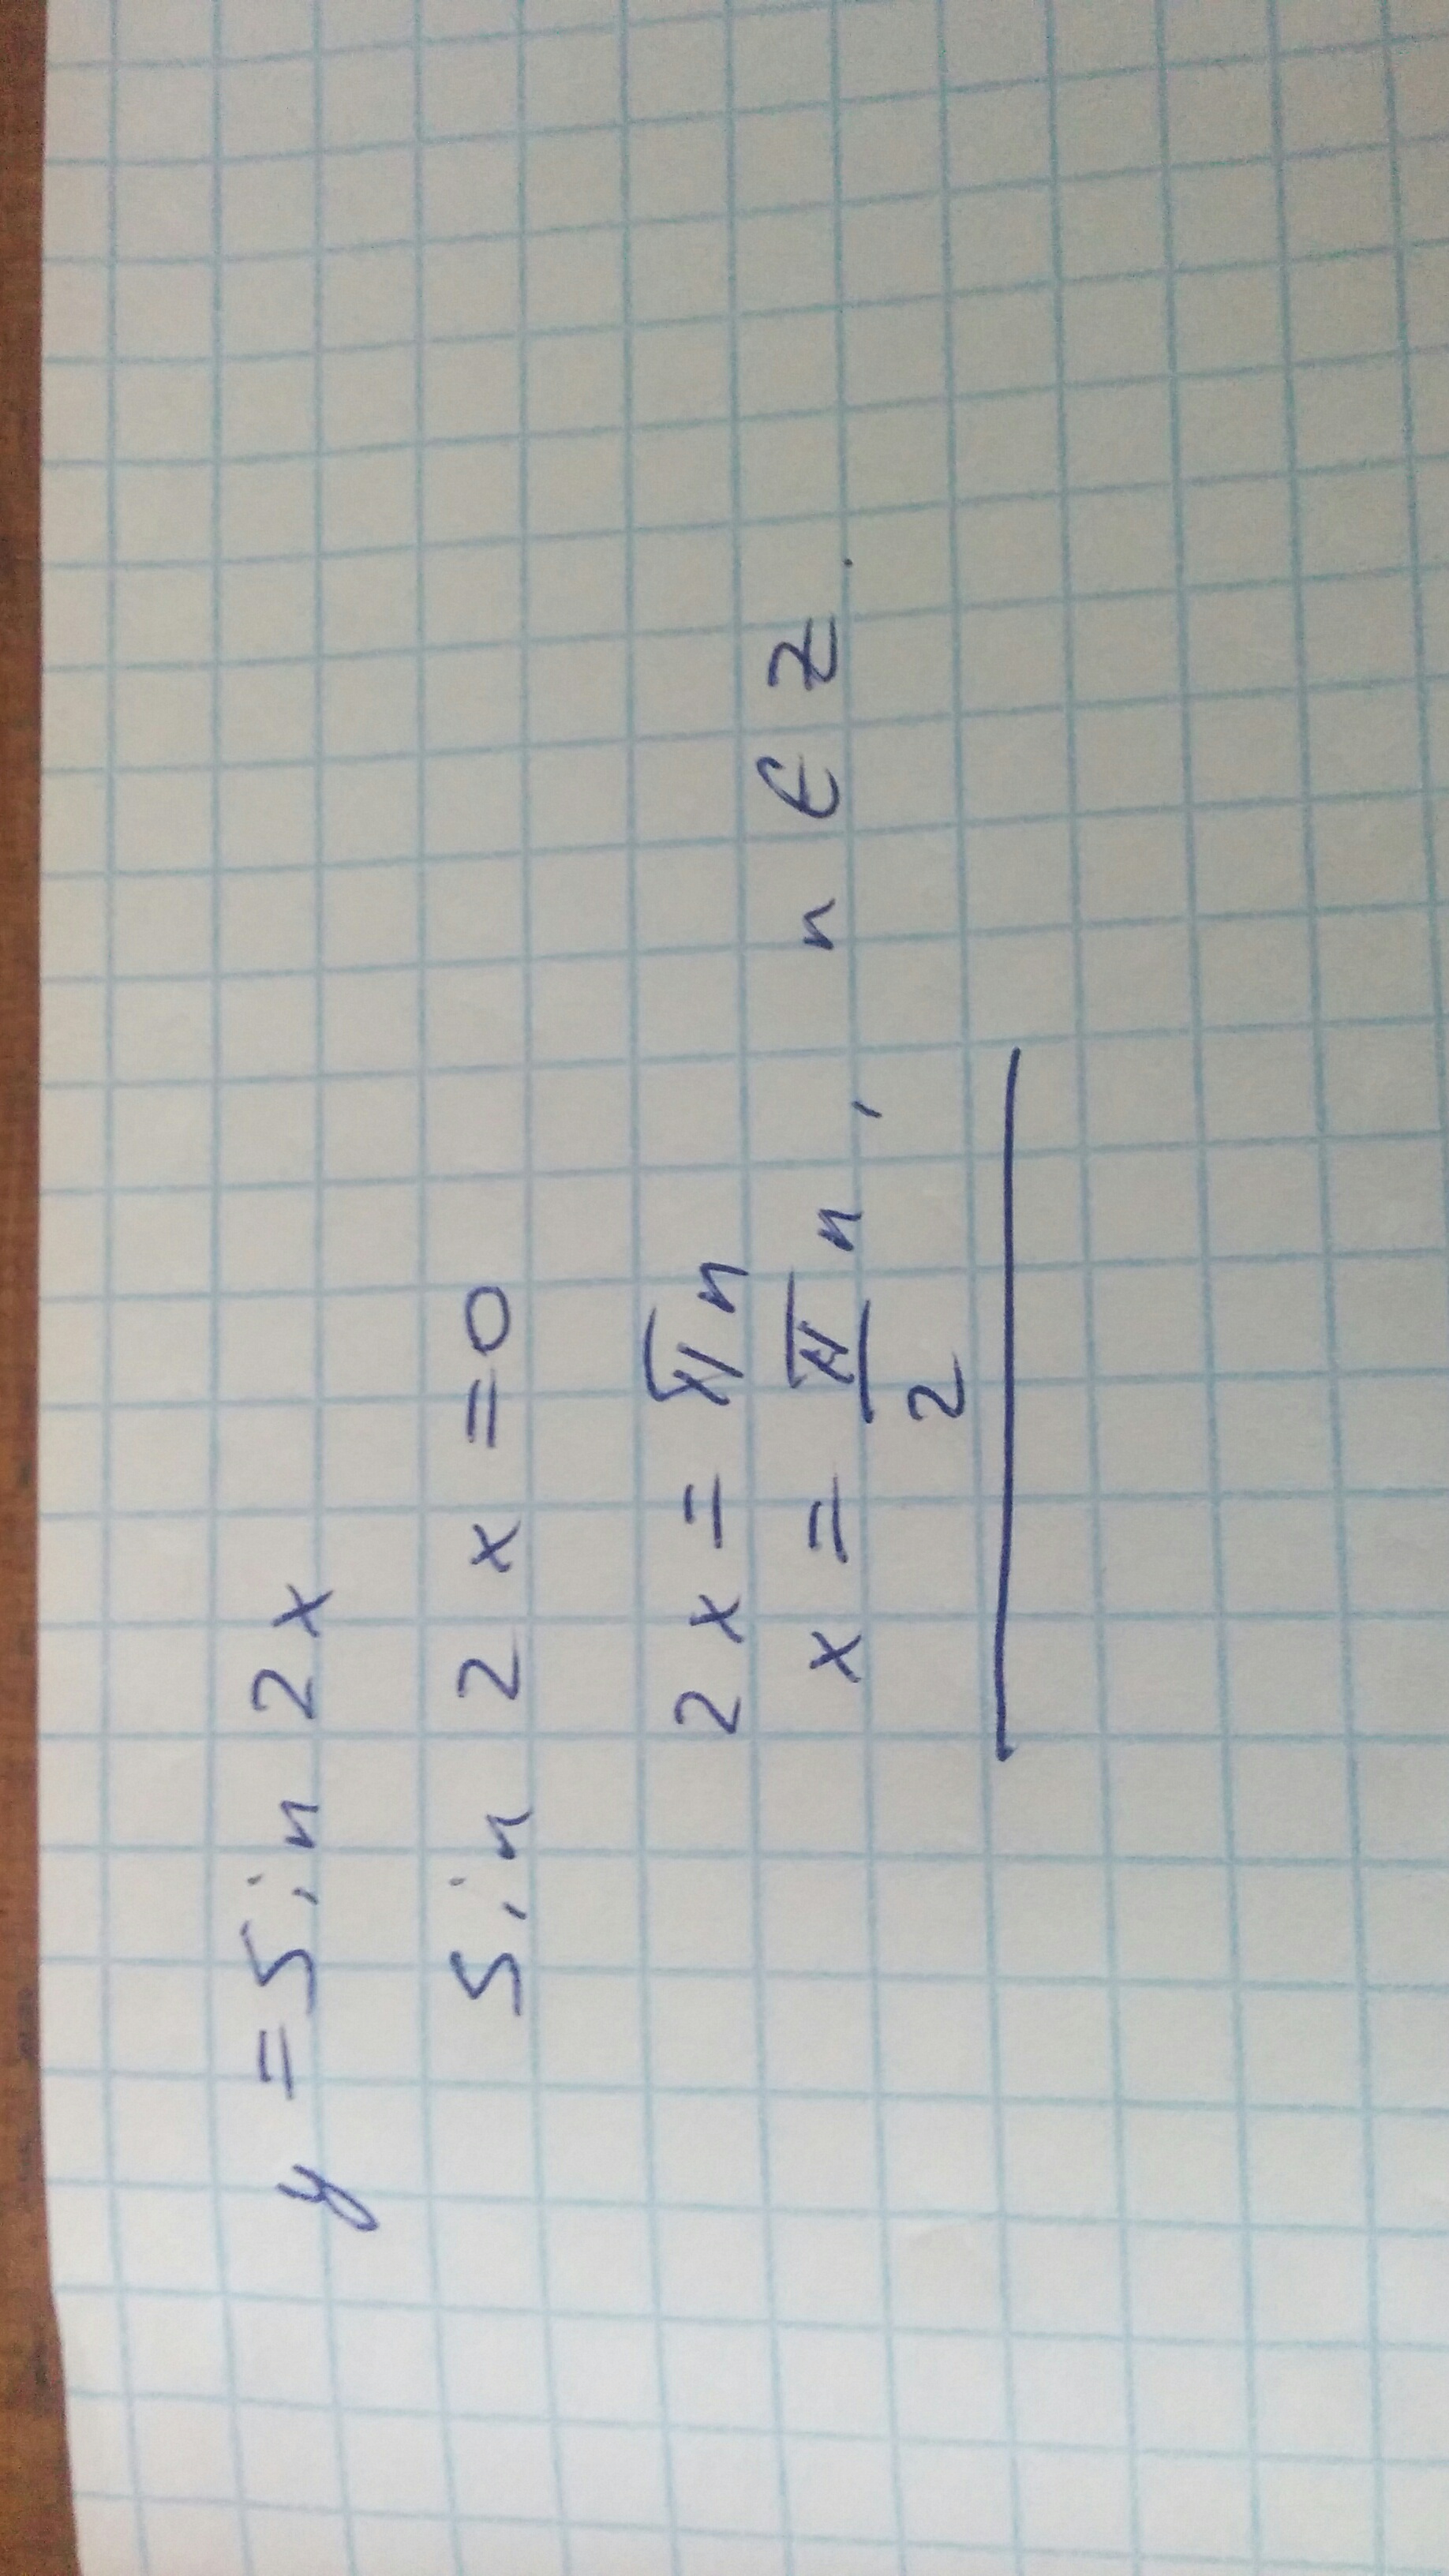 y = Sin 2x
Sin 2x = 0
2x = πn
x = π/2 n, n ∈ Z.